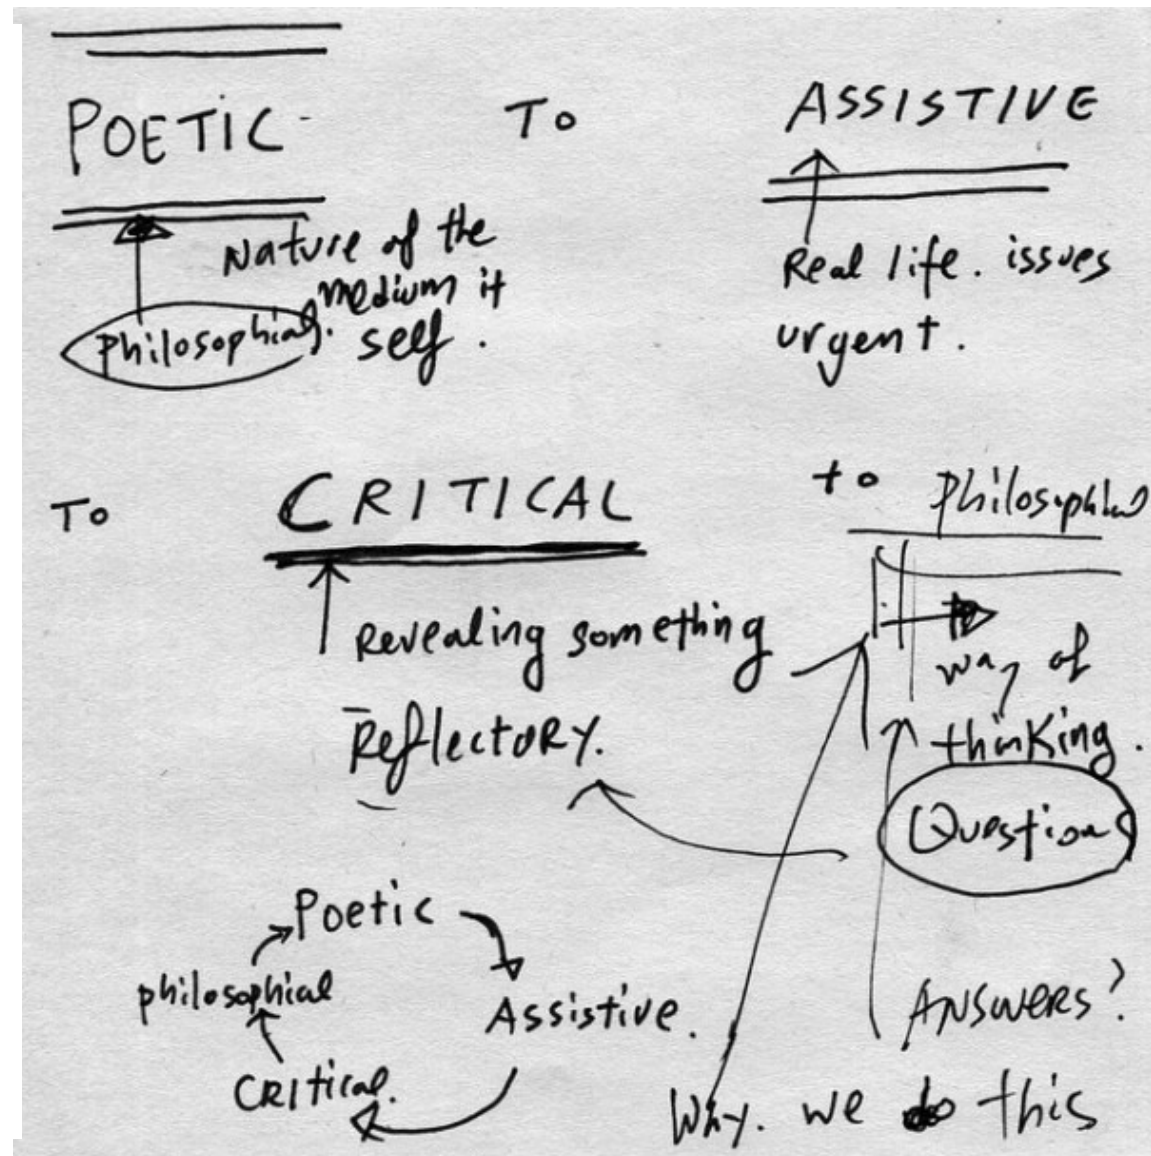 POETIC To ASSISTIVE
Nature of the
medium it
self.
philosophial.
Real life. issues
urgent.
To CRITICAL to philosophial
Revealing something
Reflectory.
way of
thinking.
Questions
Poetic
philosophical
Assistive.
Critical.
ANSWERS?
Why. we do this